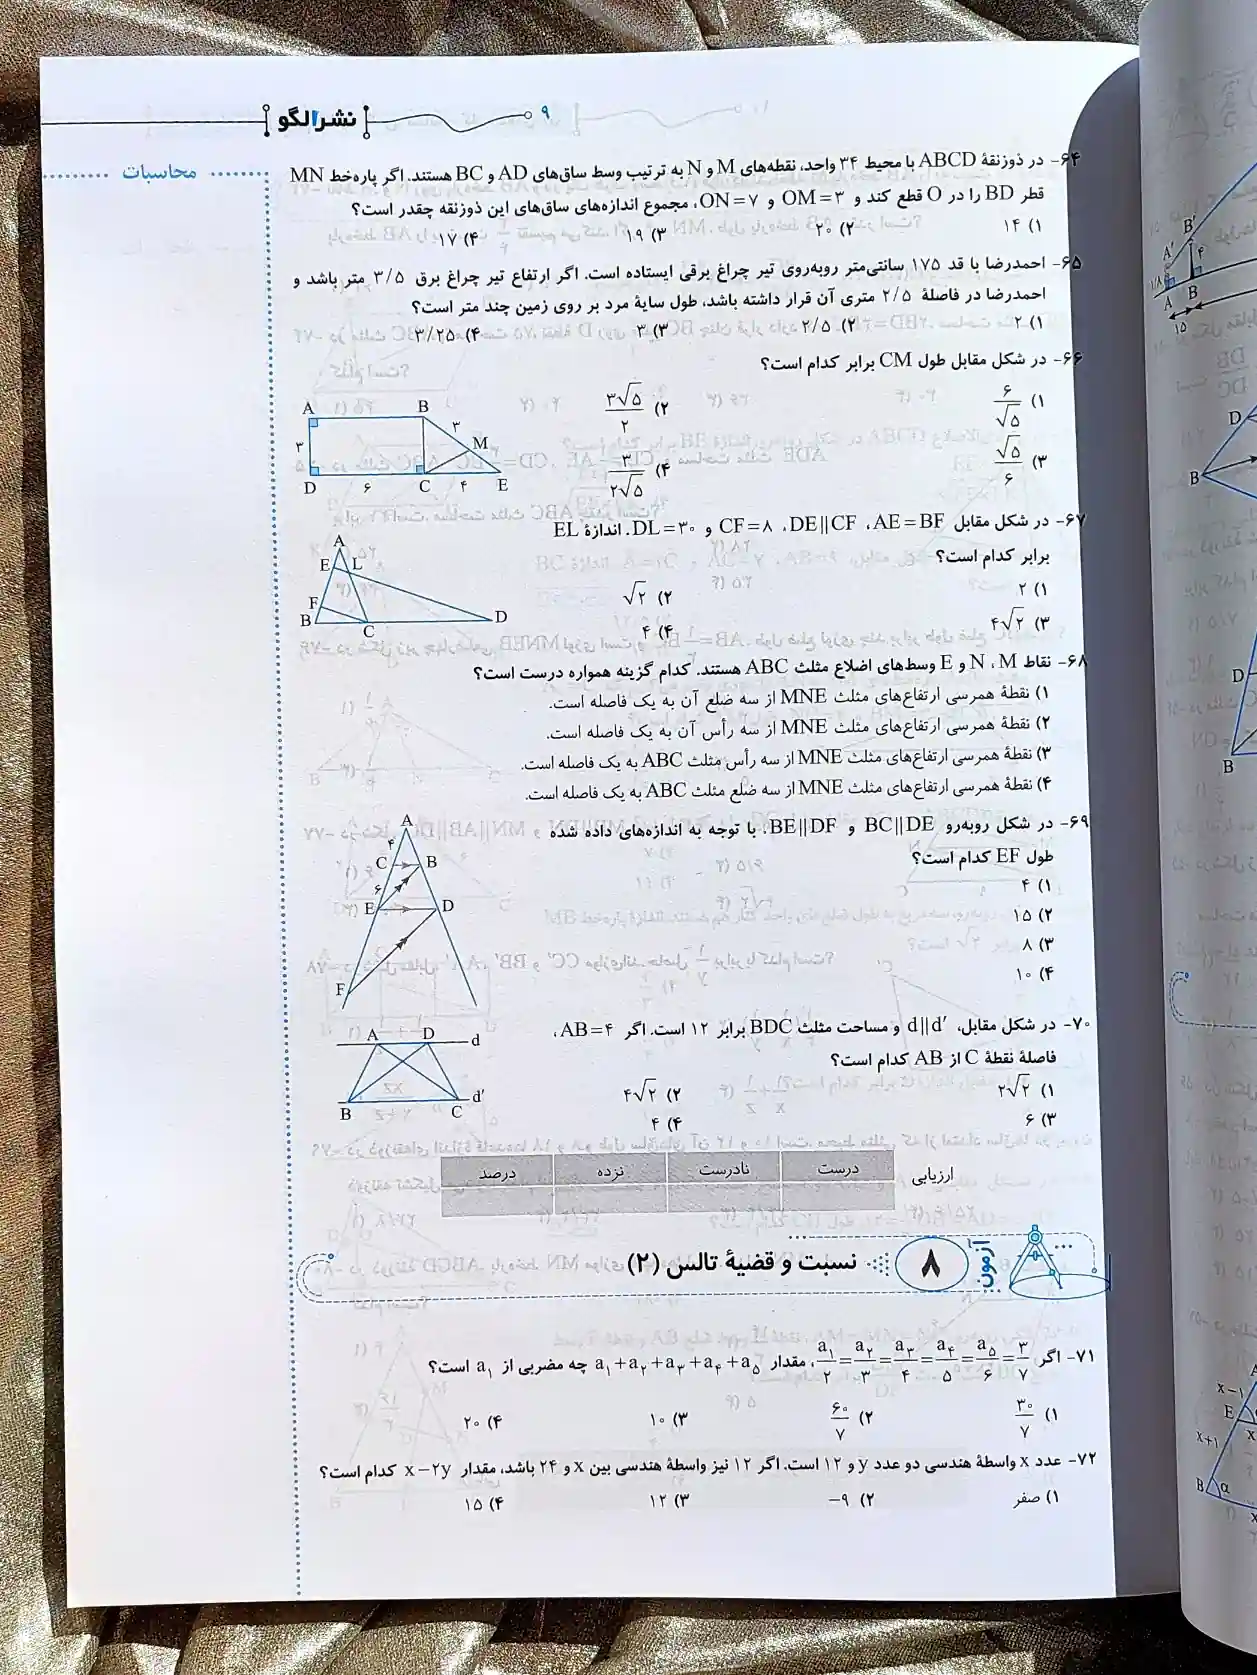 نشر الگو
۹
محاسبات
۶۴- در ذوزنقهٔ ABCD با محیط ۳۴ واحد، نقطه‌های M و N به ترتیب وسط ساق‌های AD و BC هستند. اگر پاره‌خط MN
قطر BD را در O قطع کند و OM=۳ و ON=۷، مجموع اندازه‌های ساق‌های این ذوزنقه چقدر است؟
۱) ۱۴ ۲) ۲۰ ۳) ۱۹ ۴) ۱۷
۶۵- احمدرضا با قد ۱۷۵ سانتی‌متر روبه‌روی تیر چراغ برقی ایستاده است. اگر ارتفاع تیر چراغ برق ۳/۵ متر باشد و
احمدرضا در فاصلهٔ ۲/۵ متری آن قرار داشته باشد، طول سایهٔ مرد بر روی زمین چند متر است؟
۱) ۲ ۲) ۲/۵ ۳) ۳ ۴) ۳/۲۵
۶۶- در شکل مقابل طول CM برابر کدام است؟
۱) ۶/√۵ ۲) ۳√۵/۲
۳) √۵/۶ ۴) ۳/۲√۵
A B ۳ M ۳ D ۶ C ۴ E
۶۷- در شکل مقابل AE=BF، DE||CF، CF=۸ و DL=۳۰. اندازهٔ EL
برابر کدام است؟
۱) ۲ ۲) √۲
۳) ۴√۲ ۴) ۴
A E L F B C D
۶۸- نقاط M، N و E وسط‌های اضلاع مثلث ABC هستند. کدام گزینه همواره درست است؟
۱) نقطهٔ همرسی ارتفاع‌های مثلث MNE از سه ضلع آن به یک فاصله است.
۲) نقطهٔ همرسی ارتفاع‌های مثلث MNE از سه رأس آن به یک فاصله است.
۳) نقطهٔ همرسی ارتفاع‌های مثلث MNE از سه رأس مثلث ABC به یک فاصله است.
۴) نقطهٔ همرسی ارتفاع‌های مثلث MNE از سه ضلع مثلث ABC به یک فاصله است.
۶۹- در شکل روبه‌رو BC||DE و BE||DF. با توجه به اندازه‌های داده شده
طول EF کدام است؟
۱) ۴
۲) ۱۵
۳) ۸
۴) ۱۰
A ۴ C B ۶ E D F
۷۰- در شکل مقابل، d||d′ و مساحت مثلث BDC برابر ۱۲ است. اگر AB=۴،
فاصلهٔ نقطهٔ C از AB کدام است؟
۱) ۲√۲ ۲) ۴√۲
۳) ۶ ۴) ۴
A D d B C d′
ارزیابی درست نادرست نزده درصد
آزمون ۸ نسبت و قضیهٔ تالس (۲)
۷۱- اگر a۱/۲=a۲/۳=a۳/۴=a۴/۵=a۵/۶=۳/۷، مقدار a۱+a۲+a۳+a۴+a۵ چه مضربی از a۱ است؟
۱) ۳۰/۷ ۲) ۶۰/۷ ۳) ۱۰ ۴) ۲۰
۷۲- عدد x واسطهٔ هندسی دو عدد y و ۱۲ است. اگر ۱۲ نیز واسطهٔ هندسی بین x و ۲۴ باشد، مقدار x−۲y کدام است؟
۱) صفر ۲) ۹− ۳) ۱۲ ۴) ۱۵